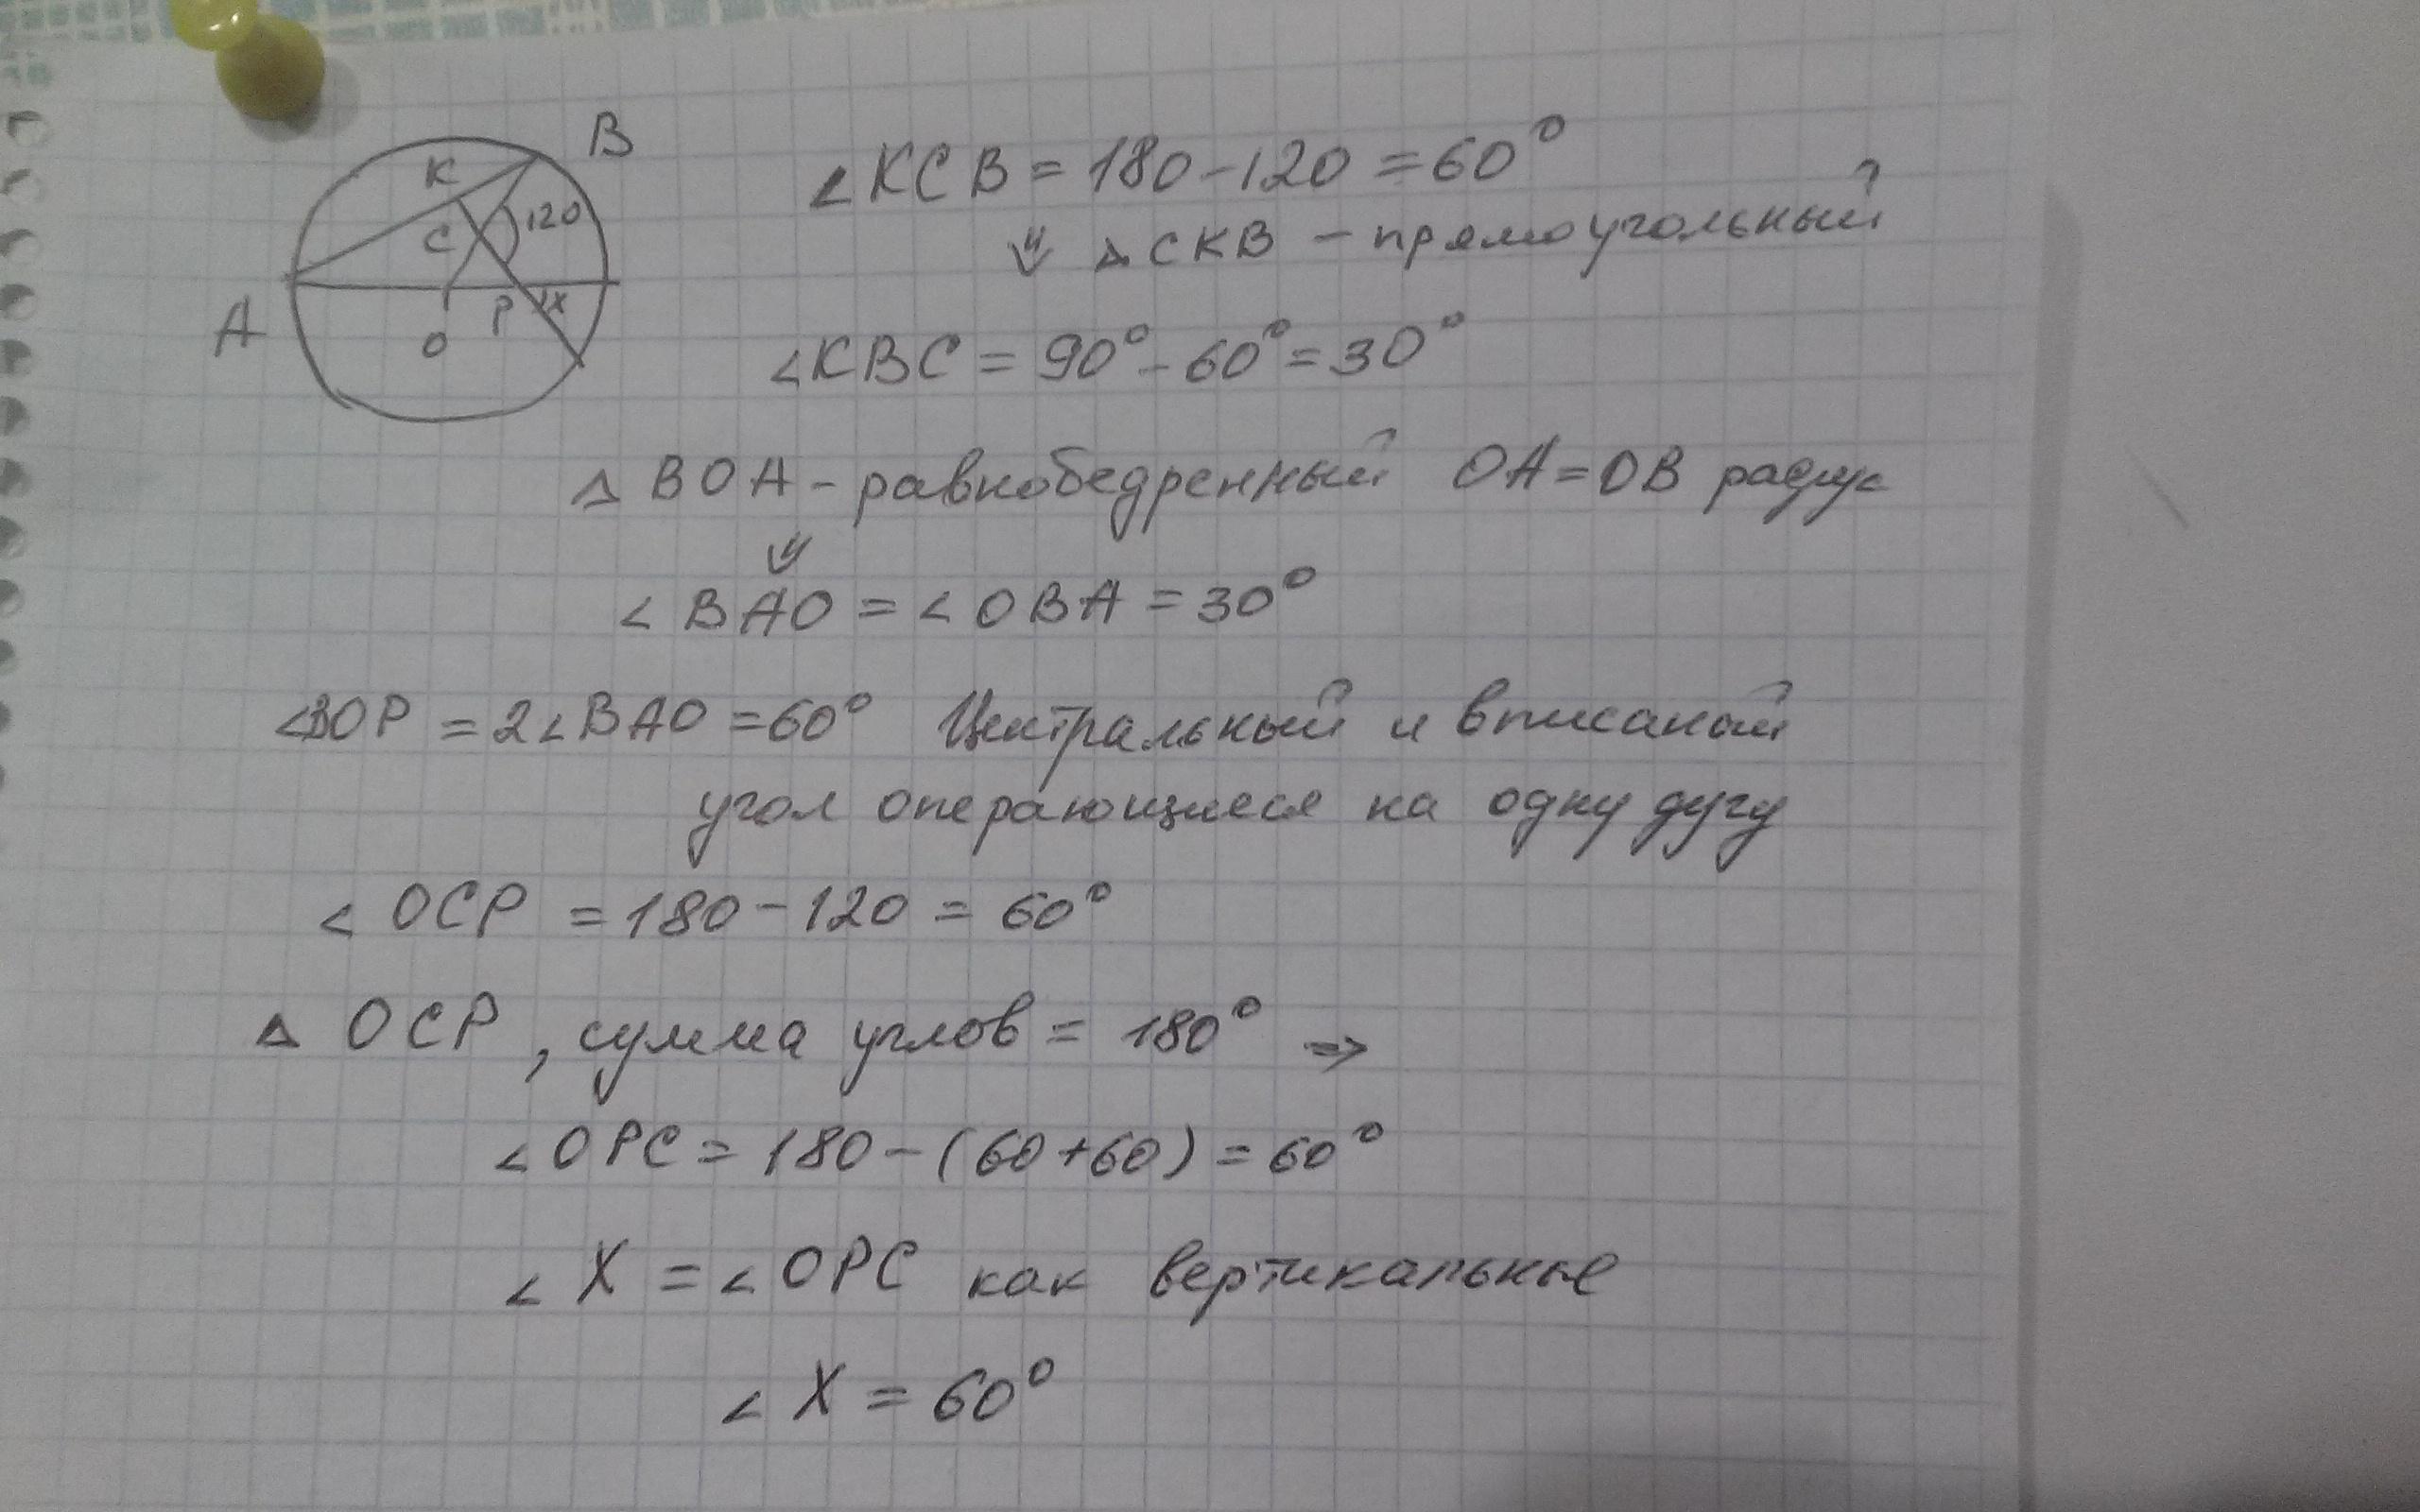 B
K
C 120
A
P X
O
∠KCB = 180 - 120 = 60°
⇓ △ CKB - прямоугольный
∠KBC = 90° - 60° = 30°
△ BOA - равнобедренный OA = OB радиус
⇓
∠ BAO = ∠ OBA = 30°
∠BOP = 2∠BAO = 60° Центральный и вписаный
угол опера��ющиеся на одну дугу
∠ OCP = 180 - 120 = 60°
△ OCP, сумма углов = 180° ⇒
∠OPC = 180 - (60 + 60) = 60°
∠ X = ∠ OPC как вертикальные
∠ X = 60°